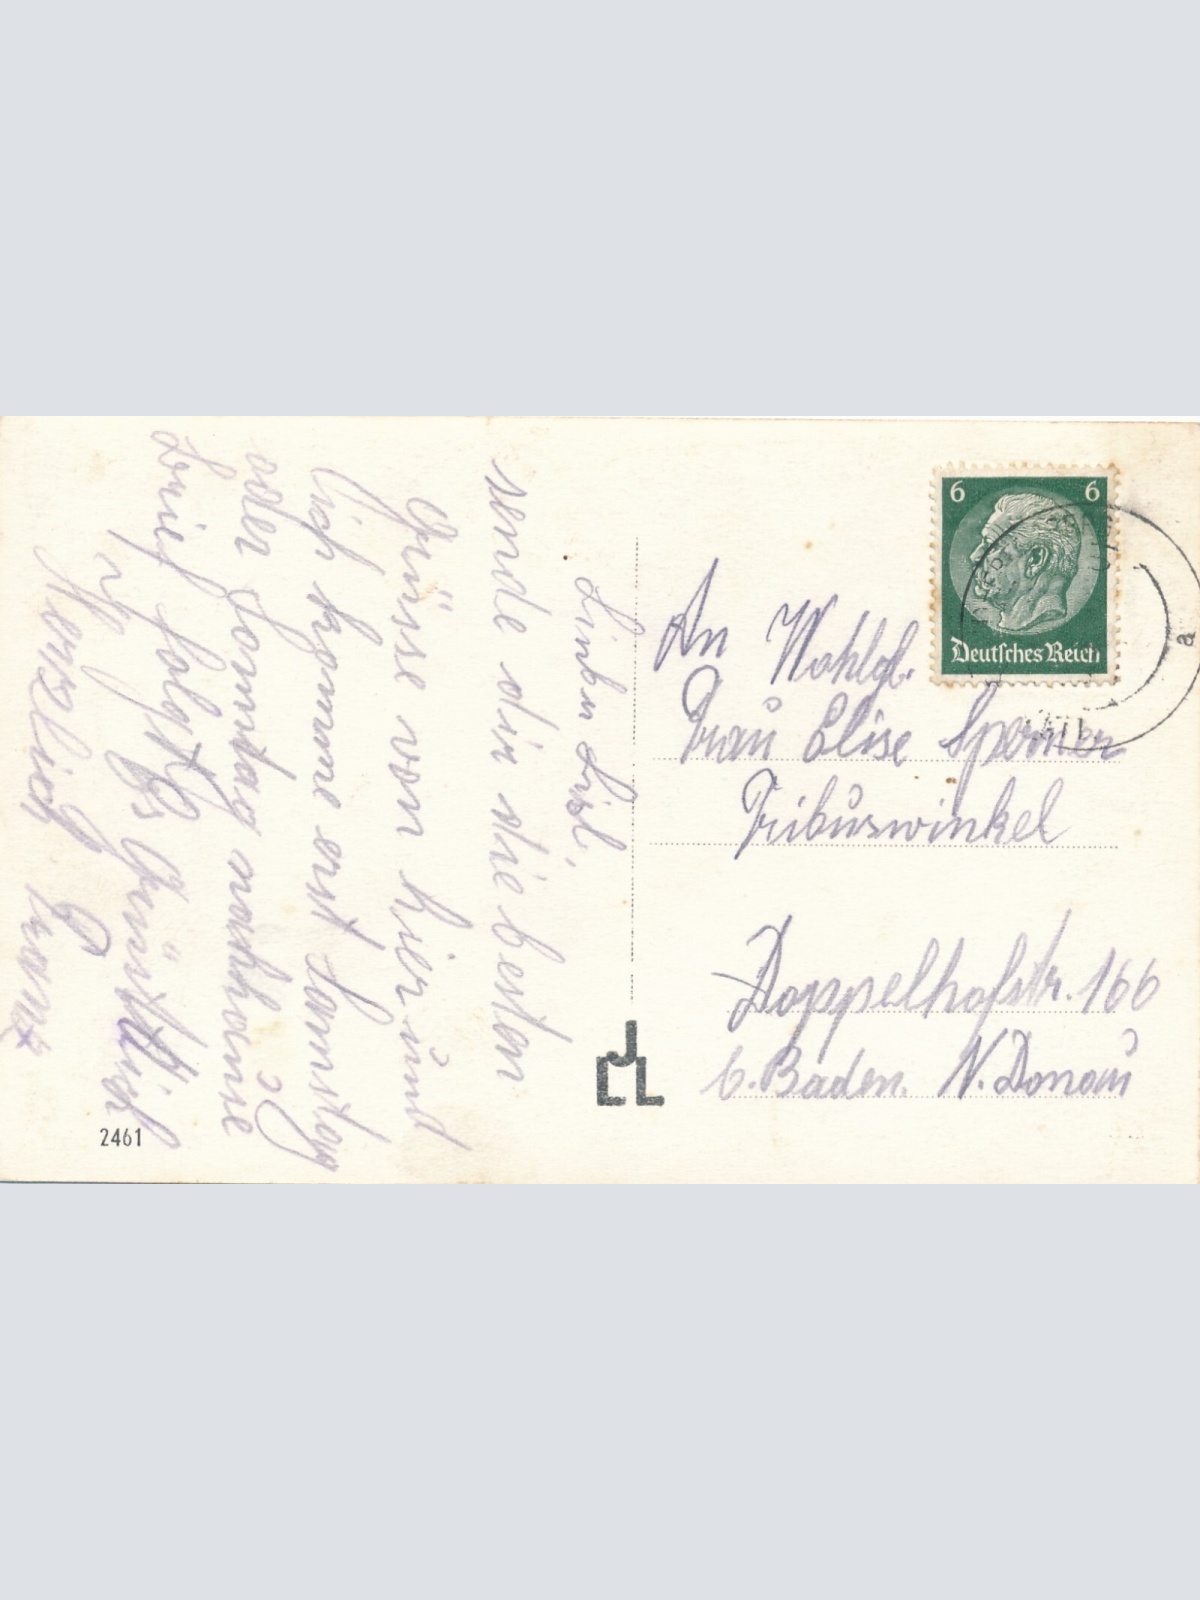 Liebe Lisl,
sende dir die besten
Grüsse von hier und
ich komme erst Samstag
oder Sonntag nachhause
Brief folgt Es
Grüsst dich
Herzlich Franz
2461
6 6
Deutsches Reich
a
An Wohlgb.
Frau Elise Sporner
Tribuswinkel
Doppelhofstr. 166
b. Baden. N. Donau